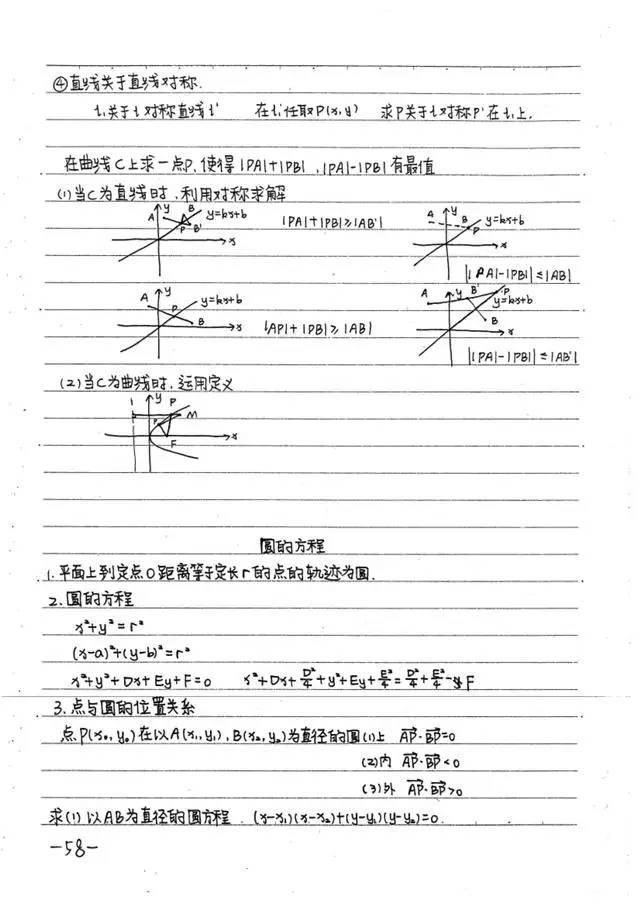 ④直线关于直线对称.
l₁关于l对称直线l' 在l₁'任取P(x,y) 求P关于l对称P'在l₁上.
在曲线C上求一点P,使得|PA|+|PB|,|PA|-|PB|有最值
(1)当C为直线时,利用对称求解
A y B y=kx+b P B' x |PA|+|PB|≥|AB'| A y B y=kx+b P x
||PA|-|PB||≤|AB|
A y y=kx+b P B x |AP|+|PB|≥|AB| A y B' P y=kx+b B x
||PA|-|PB||≤|AB'|
(2)当C为曲线时,运用定义
y P M F x
圆的方程
1.平面上到定点O距离等于定长r的点的轨迹为圆.
2.圆的方程
x²+y²=r²
(x-a)²+(y-b)²=r²
x²+y²+Dx+Ey+F=0 x²+Dx+D²/4+y²+Ey+E²/4=D²/4+E²/4-F
3.点与圆的位置关系
点P(x₀,y₀)在以A(x₁,y₁),B(x₂,y₂)为直径的圆(1)上 AP·BP=0
(2)内 AP·BP<0
(3)外 AP·BP>0
求(1)以AB为直径的圆方程.(x-x₁)(x-x₂)+(y-y₁)(y-y₂)=0.
-58-